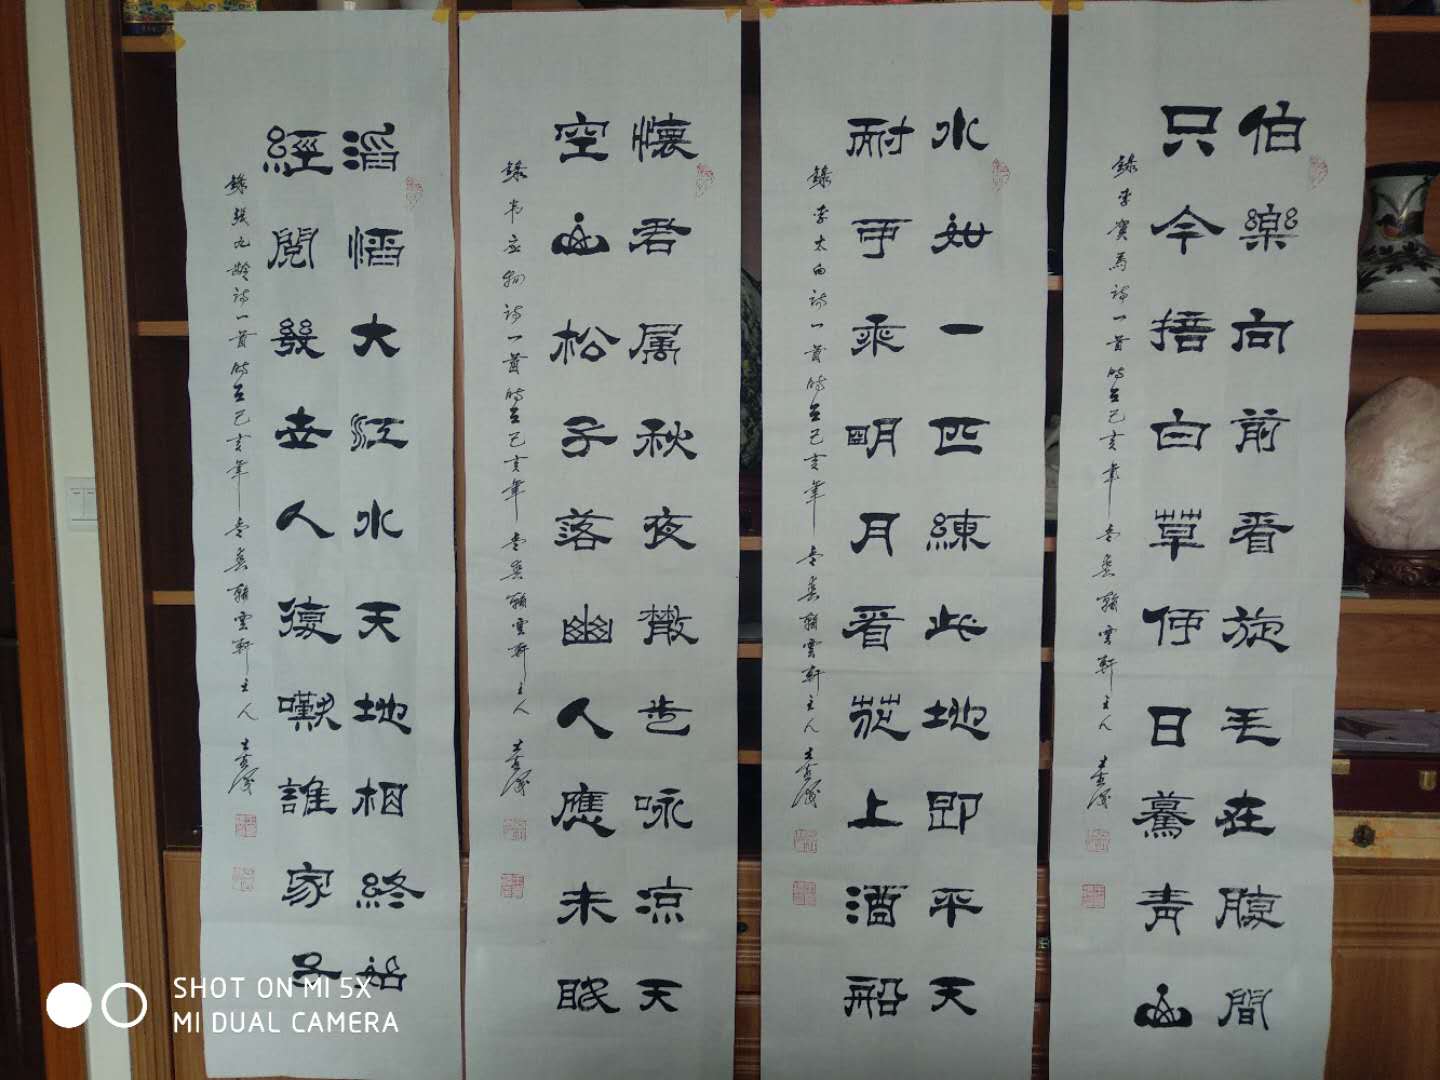 伯樂向前看旋毛在腹間
只今掊白草何日驀青山
錄李賀馬詩一首時在己亥年 翰雲軒主人
水如一匹練此地即平天
耐可乘明月看花上酒船
錄李太白詩一首時在己亥年 翰雲軒主人
懷君属秋夜散步咏凉天
空山松子落幽人應未眠
錄韦应物詩一首時在己亥年 翰雲軒主人
滔慆大江水天地相終始
經閱幾世人復嘆誰家子
錄張九齡詩一首時在己亥年 翰雲軒主人
SHOT ON MI 5X
MI DUAL CAMERA